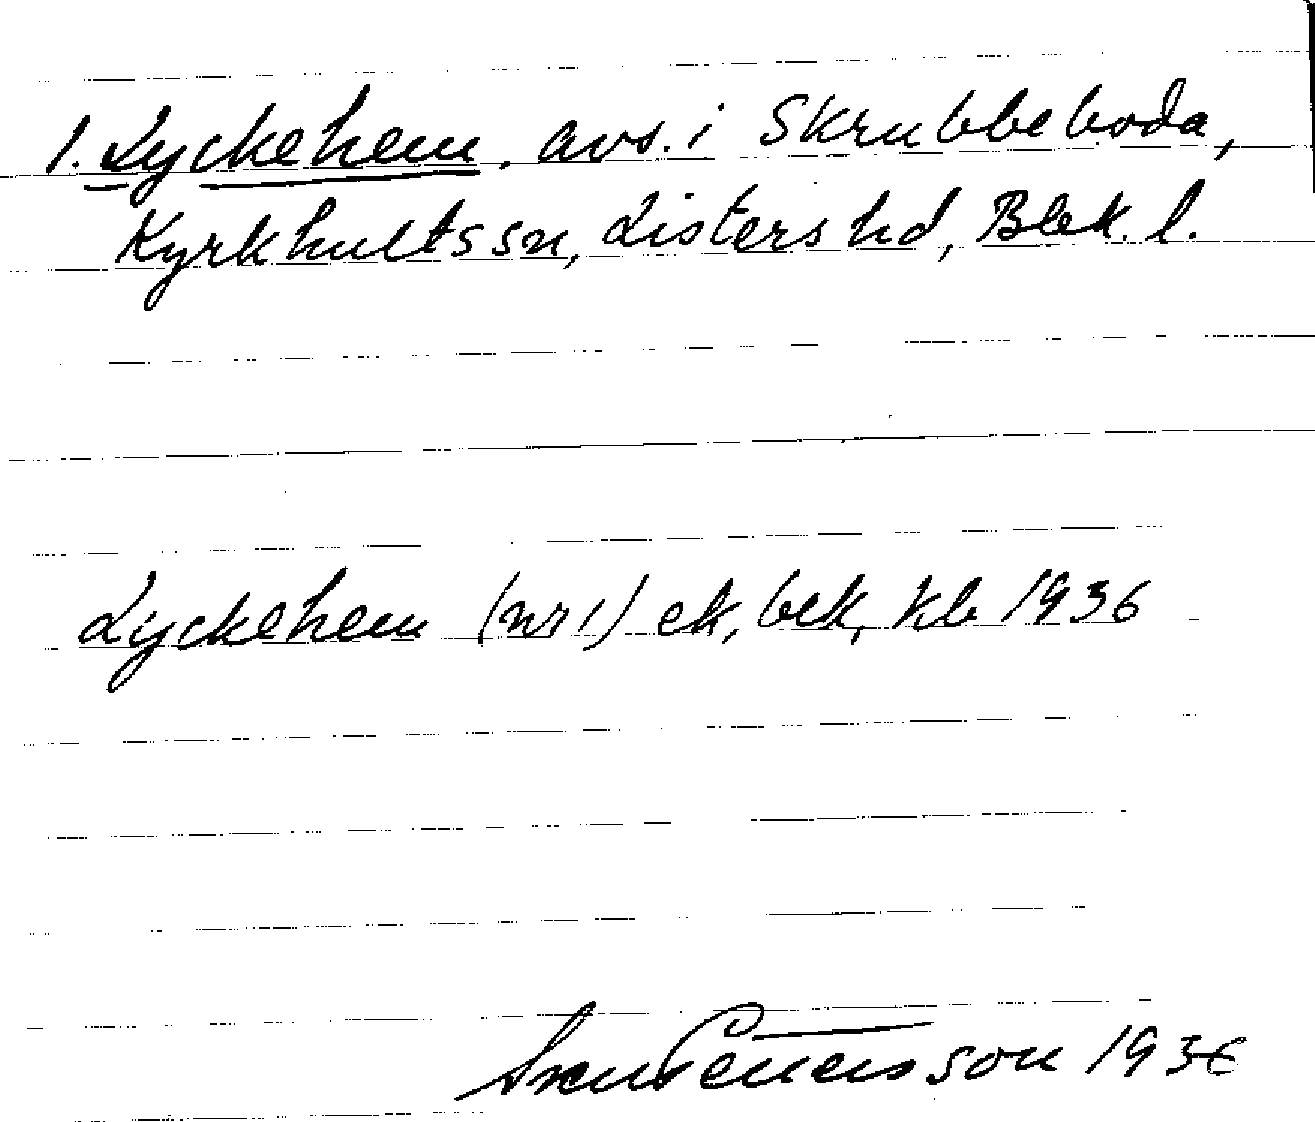 1. Lyckehem, avs. i Skrubbeboda,
Kyrkhults sn, Listers hd, Blek. l.
Lyckehem (nr 1) ek, bek, kb 1936
Sven Pettersson 1936